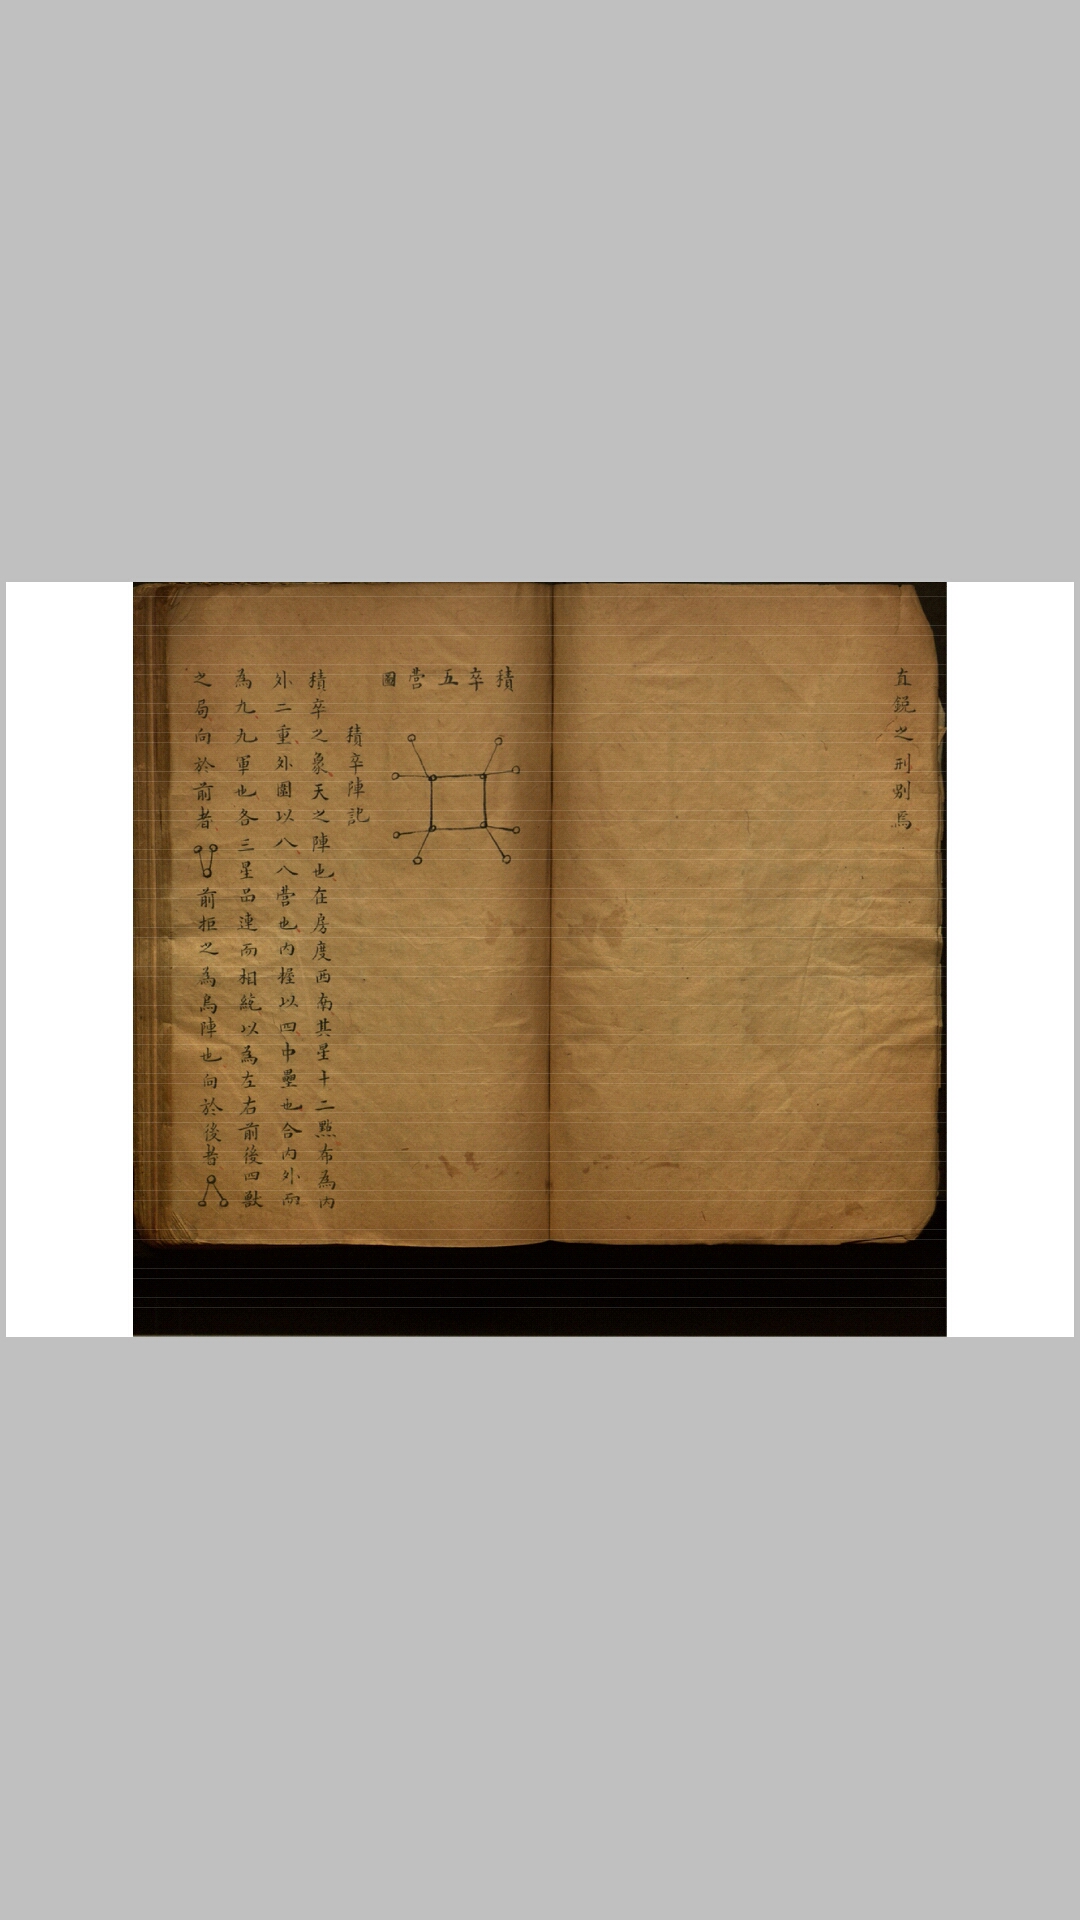 直銳之刑別焉
積卒五營圖
積卒陣記
積卒之象天之陣也在房度西南其星十二點布為內
外二重外圍以八八營也內握以四中壘也合內外而
為九九軍也各三星品連而相統以為左右前後四獸
之局向於前者前拒之為鳥陣也向於後者